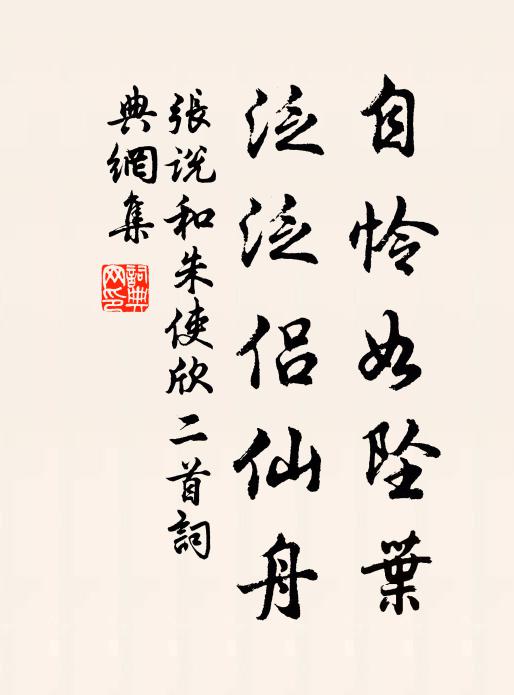 自怜如坠葉
泛泛侣仙舟
張説和朱使欣二首詞
典網集
詞典网印